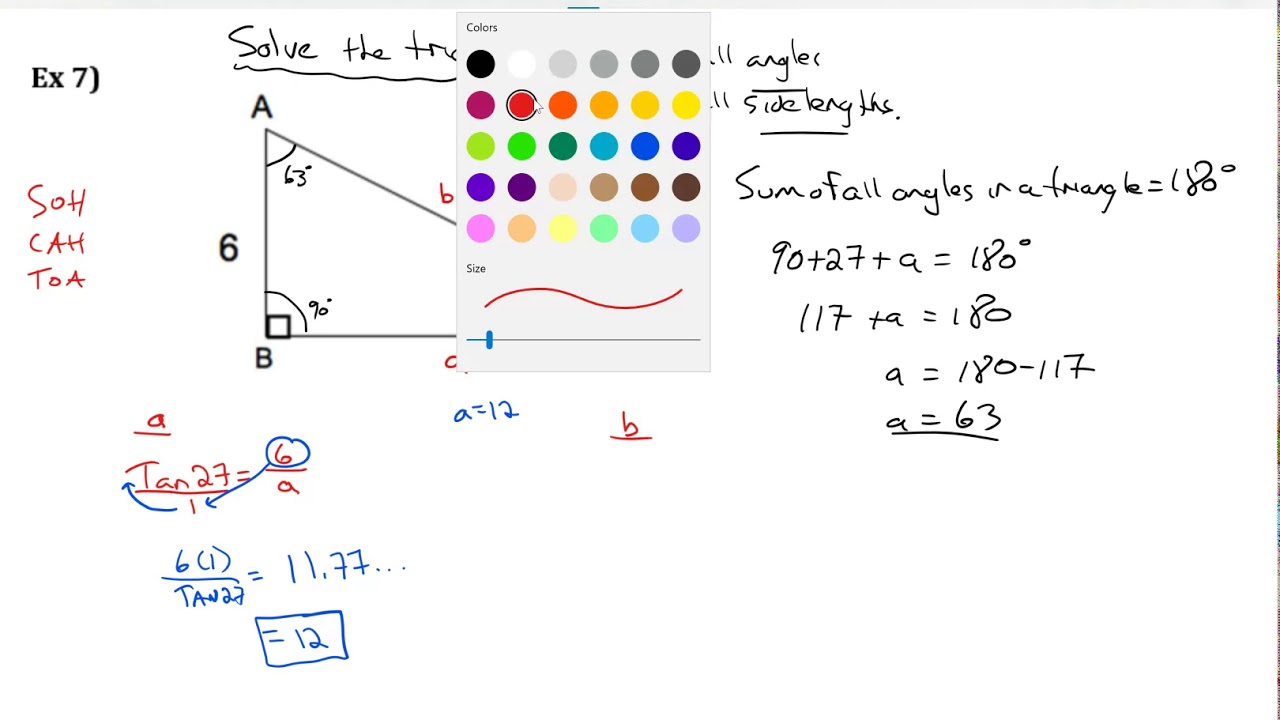 Solve the
Ex 7)
angles
side lengths.
Colors
A
63°
b
SOH
CAH
TOA
6
90°
B
Size
Sum of all angles in a triangle = 180°
90+27+a = 180°
117 +a = 180
a = 180-117
a = 63
a=12
a
b
Tan27 = 6
1 a
6(1) = 11.77...
TAN27
= 12